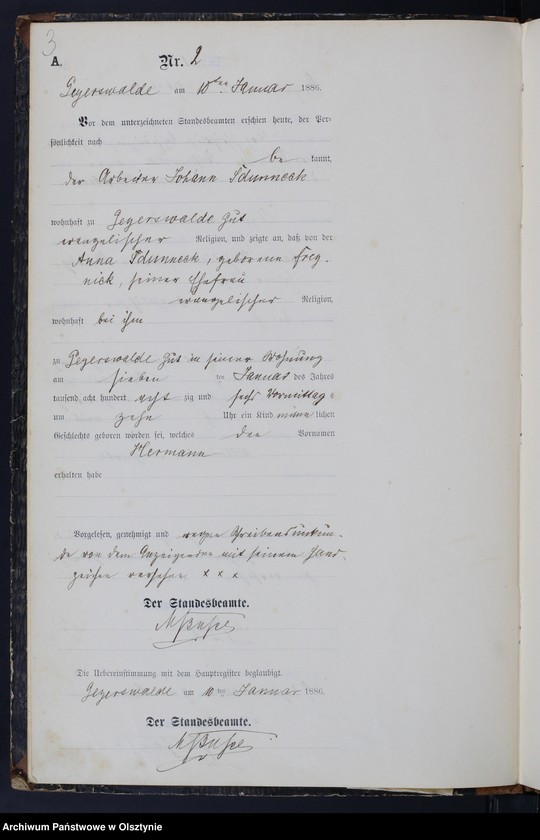 3
A.
Nr. 2
Geyerswalde am 10ten Januar 1886.
Vor dem unterzeichneten Standesbeamten erschien heute, der Per-
sönlichkeit nach
be kannt,
der Arbeiter Johann
wohnhaft zu Geyerswalde Gut
evangelischer Religion, und zeigte an, daß von der
Anna geborene
seiner Ehefrau
evangelischer Religion,
wohnhaft bei ihm
zu Geyerswalde Gut in seiner Wohnung
am sieben ten Januar des Jahres
tausend acht hundert acht zig und sechs Vormittags
um zehn Uhr ein Kind männ lichen
Geschlechts geboren worden sei, welches den Vornamen
Hermann
erhalten habe
Vorgelesen, genehmigt und wegen Schreibensunkun-
de von dem Anzeigenden mit seinem Hand-
zeichen versehen x x x
Der Standesbeamte.
Die Uebereinstimmung mit dem Hauptregister beglaubigt.
Geyerswalde am 10ten Januar 1886.
Der Standesbeamte.
Archiwum Państwowe w Olsztynie